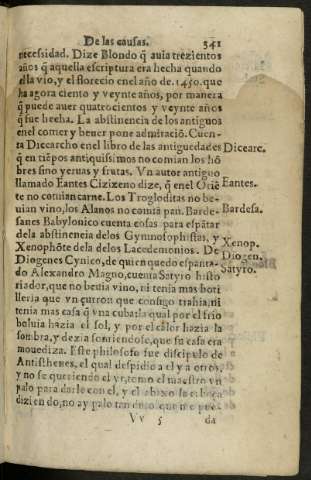 De las causas. 341
necessidad. Dize Blondo q̃ auia trezientos
años q̃ aquella escriptura era hecha quando
el la vio, y el florecio en el año de .1450. que
ha agora ciento y veynte años, por manera
q̃ puede auer quatrocientos y veynte años
que fue hecha. La abstinencia de los antiguos
en el comer y beuer pone admiraciõ. Cuen-
ta Diccarcho en el libro de las antiguedades
Dicearc.
q̃ en tiẽpos antiquissimos no comian los hõ
bres sino yeruas y frutas. Vn autor antiguo
llamado Eantes Cizizeno dize, q̃ en el Oriẽ
Eantes.
te no comian carne. Los Trogloditas no be-
uian vino, los Alanos no comiã pan. Barde-
Bardesa.
sanes Babylonico cuenta cosas para espãtar
de la abstinencia de los Gymnosophistas, y
Xenophõte de la de los Lacedemonios. De
Xenop.
Diogenes Cynico, de quien quedo espanta-
Diogen.
do Alexandro Magno, cuenta Satyro histo
Satyro.
riador, que no beuia vino, ni tenia mas boti
lleria que vn çurron que consigo trahia, ni
tenia mas casa q̃ vna cuba, la qual por el frio
boluia hazia el sol, y por el calor hazia la
sombra, y dezia sonriendose, que su casa era
mouediza. Este philosofo fue discipulo de
Antisthenes, el qual despidio a el y a otros,
y no se queriendo el yr, tomo el maestro vn
palo para darle con el, y el abaxo la cabeça
diziendo, no ay palo tan duro que me pue-
Vv 5 da